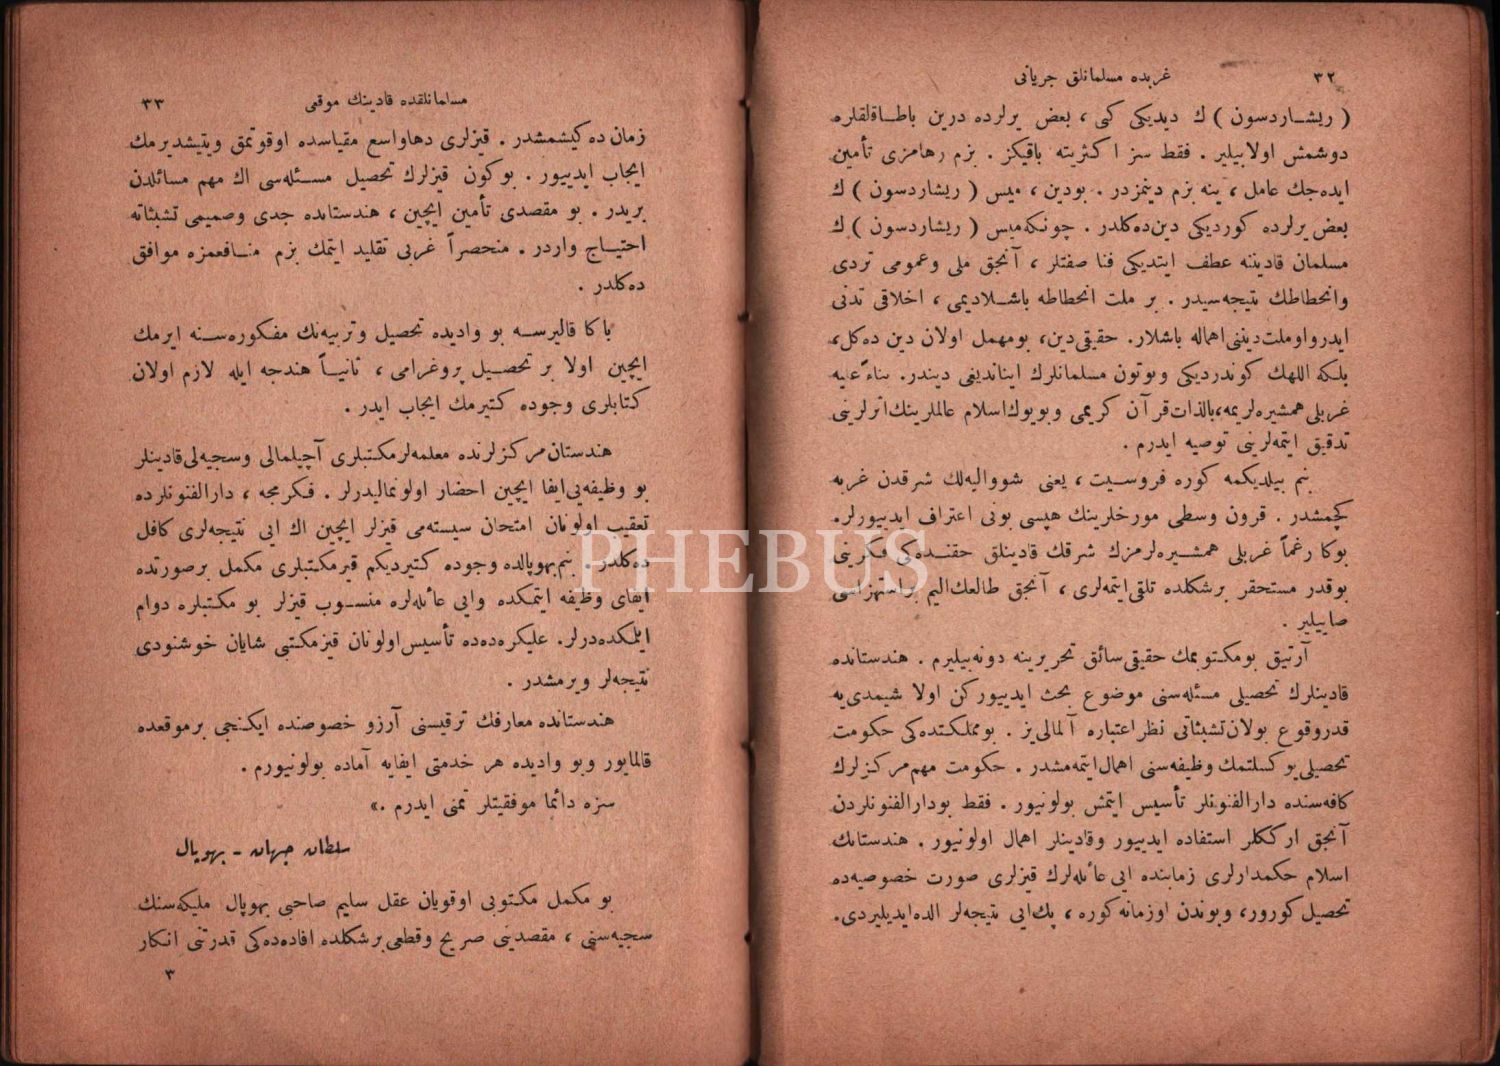 ٣٢
غربده مسلمانلق جریانی
( ریشاردسون ) ك دیدیکی کبی ، بعض یرلرده درین باطاقلقلره
دوشمش اولابیلیر . فقط سز اکثریته باقیکز . بزم رهامزی تأمین
ایده‌جك عامل ، ینه بزم دینمزدر . بودین ، میس ( ریشاردسون ) ك
بعض یرلرده کوردیکی دین ده‌کلدر . چونکه میس ( ریشاردسون ) ك
مسلمان قادیننه عطف ایتدیکی فنا صفتلر ، آنجق ملی وعمومی تردی
وانحطاطك نتیجه‌سیدر . بر ملت انحطاطه باشلادیمی ، اخلاقی تدنی
ایدر واو ملت دیننی اهماله باشلار. حقیقی دین، بومهمل اولان دین ده‌کل،
بلکه اللهك کوندردیکی وبوتون مسلمانلرك ایناندیغی دیندر. بناءً علیه
غربلی همشیره‌لریمه، بالذات قرآن کریمی وبویوك اسلام عالملرینك اثرلرینی
تدقیق ایتمه‌لرینی توصیه ایدرم .
بنم بیلدیکمه کوره فروسیت ، یعنی شووالیه‌لك شرقدن غربه
کچمشدر . قرون وسطی مورخلرینك هپسی بونی اعتراف ایدییورلر.
بوکا رغماً غربلی همشیره‌لرمزك شرقك قادینلق حقنده‌کی فکرینی
بوقدر مستحقر برشکلده تلقی ایتمه‌لری ، آنجق طالعك الیم براستهزاسی
صاییلیر .
آرتیق بومکتوبمك حقیقی سائق تحریرینه دونه‌بیلیرم . هندستانده
قادینلرك تحصیلی مسئله‌سنی موضوع بحث ایدییورکن اولا شیمدی‌یه
قدر وقوع بولان تشبثاتی نظر اعتباره آلمالی‌یز . بومملکتده‌کی حکومت
تحصیلی یوکسلتمك وظیفه‌سنی اهمال ایتمه‌مشدر . حکومت مهم مرکزلرك
کافه‌سنده دارالفنونلر تأسیس ایتمش بولونیور . فقط بودارالفنونلردن
آنجق ارککلر استفاده ایدییور وقادینلر اهمال اولونیور . هندستانك
اسلام حکمدارلری زماننده ایی عائله‌لرك قیزلری صورت خصوصیه‌ده
تحصیل کورور، وبوندن اوزمانه کوره ، پك ایی نتیجه‌لر الده ایدیلیردی.
مسلمانلقده قادینك موقعی
٣٣
زمان ده‌کیشمشدر . قیزلری دها واسع مقیاسده اوقوتمق ویتیشدیرمك
ایجاب ایدییور . بوکون قیزلرك تحصیل مسئله‌سی اك مهم مسائلدن
بریدر . بو مقصدی تأمین ایچین ، هندستانده جدی وصمیمی تشبثاته
احتیاج واردر . منحصراً غربی تقلید ایتمك بزم منافعمزه موافق
ده‌کلدر .
باکا قالیرسه بو وادیده تحصیل وتربیه‌نك مفکوره‌سنه ایرمك
ایچین اولا بر تحصیل پروغرامی ، ثانیاً هندجه ایله لازم اولان
کتابلری وجوده کتیرمك ایجاب ایدر .
هندستان مرکزلرنده معلمه‌لر مکتبلری آچیلمالی وسجیه‌لی قادینلر
بو وظیفه‌یی ایفا ایچین احضار اولونمالیدرلر . فکرمجه ، دارالفنونلرده
تعقیب اولونان امتحان سیسته‌می قیزلر ایچین اك ایی نتیجه‌لری کافل
ده‌کلدر . بنم بهوپالده وجوده کتیردیکم قیز مکتبلری مکمل برصورتده
ایفای وظیفه ایتمکده وایی عائله‌لره منسوب قیزلر بو مکتبلره دوام
ایتمکده‌درلر. علیکره‌ده‌ده تأسیس اولونان قیز مکتبی شایان خوشنودی
نتیجه‌لر ویرمشدر .
هندستانده معارفك ترقیسنی آرزو خصوصنده ایکنجی برموقعده
قالمایور وبو وادیده هر خدمتی ایفایه آماده بولونیورم .
سزه دائما موفقیتلر تمنی ایدرم .»
سلطان جهان ـ بهوپال
بو مکمل مکتوبی اوقویان عقل سلیم صاحبی بهوپال ملیکه‌سنك
سجیه‌سنی ، مقصدینی صریح وقطعی برشکلده افاده‌ده‌کی قدرتنی انکار
٣
PHEBUS